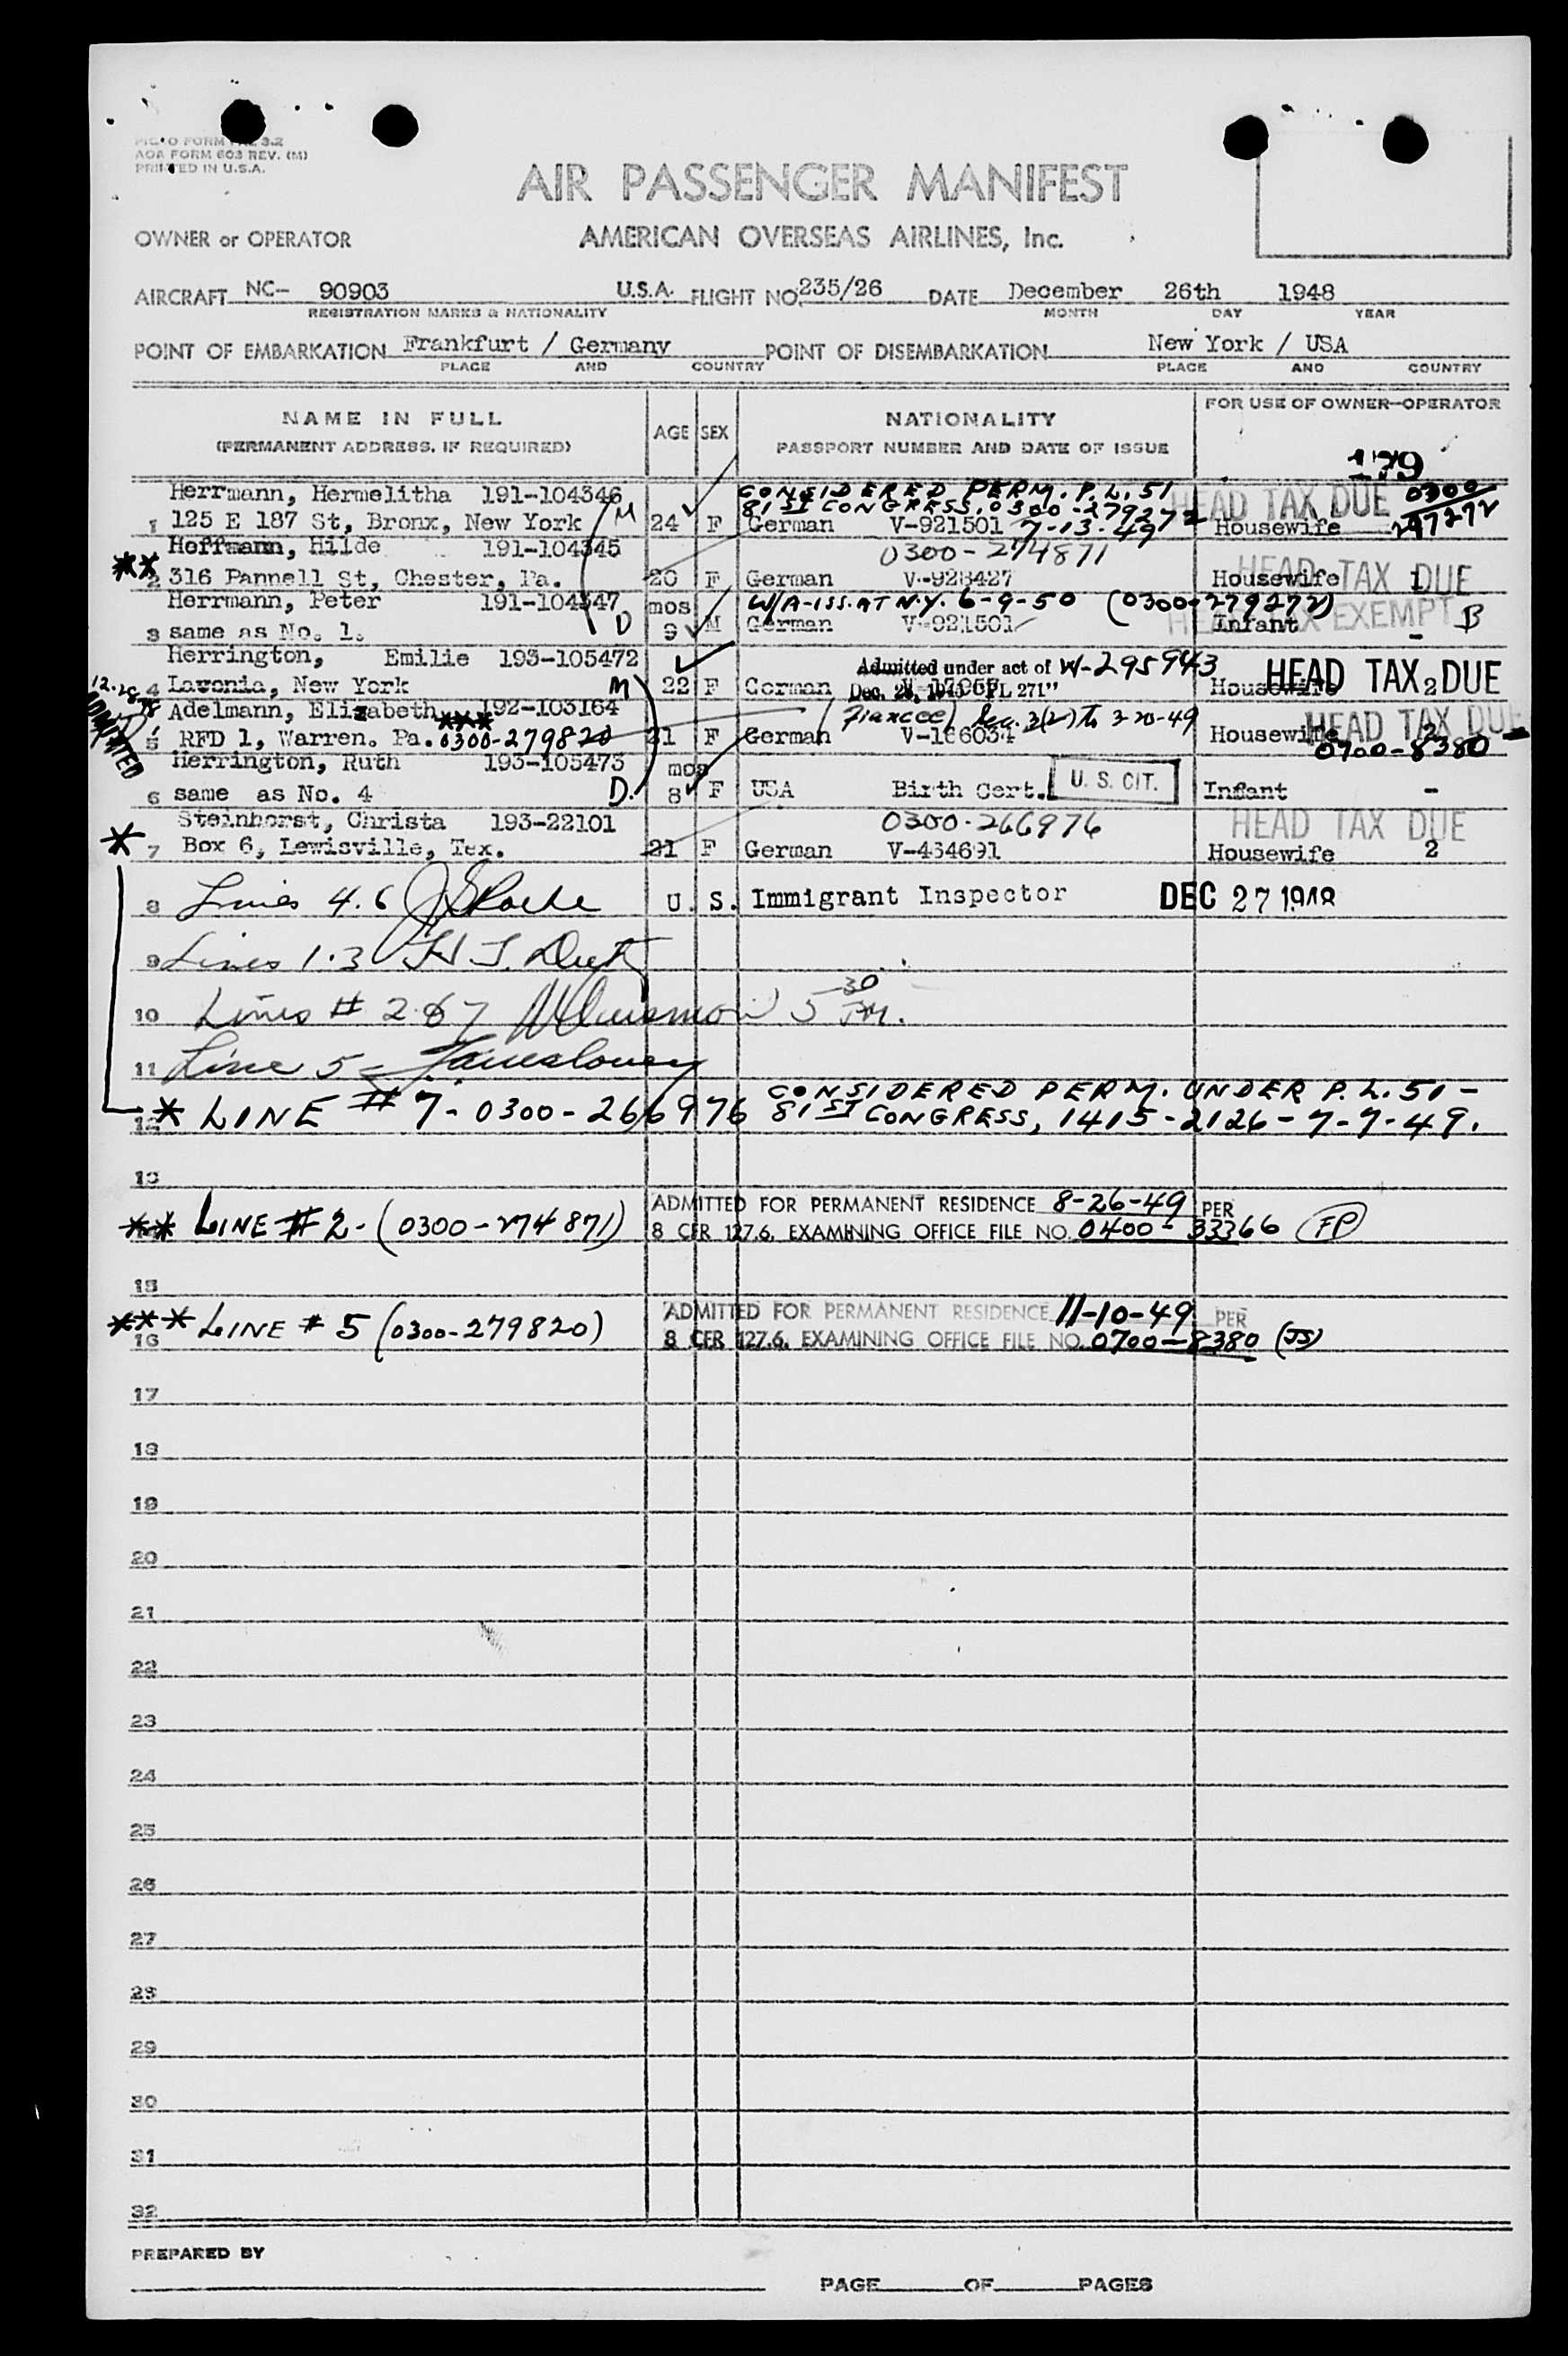 AOA FORM 603 REV. (M)
PRINTED IN U.S.A.
AIR PASSENGER MANIFEST
OWNER or OPERATOR AMERICAN OVERSEAS AIRLINES, Inc.
AIRCRAFT NC- 90903 U.S.A. FLIGHT NO. 235/26 DATE December 26th 1948
REGISTRATION MARKS & NATIONALITY MONTH DAY YEAR
POINT OF EMBARKATION Frankfurt / Germany POINT OF DISEMBARKATION New York / USA
PLACE AND COUNTRY PLACE AND COUNTRY
NAME IN FULL AGE SEX NATIONALITY FOR USE OF OWNER-OPERATOR
(PERMANENT ADDRESS, IF REQUIRED) PASSPORT NUMBER AND DATE OF ISSUE
179
Herrmann, Hermelitha 191-104346 CONSIDERED PERM. P.L. 51 HEAD TAX DUE 0300
81ST CONGRESS. 0300-279272 297272
1 125 E 187 St, Bronx, New York M 24 F German V-921501 7-13-49 Housewife
Hoffmann, Hilde 191-104345 0300-274871 HEAD TAX DUE
** 2 316 Pannell St, Chester, Pa. 20 F German V-928427 Housewife 1
Herrmann, Peter 191-104347 mos W/A-ISS. AT N.Y. 6-9-50 (0300-279272) HEAD TAX EXEMPT
3 same as No. 1. D 9 M German V-921501 Infant - B
Herrington, Emilie 193-105472 Admitted under act of W-295943 HEAD TAX DUE
4 Lavonia, New York M 22 F German Dec. 28, 1945 "PL 271" Housewife 2
Adelmann, Elizabeth *** 192-103164 (Fiancee) Sec. 3(2) to 3-20-49 HEAD TAX DUE
ADMITTED
5 RFD 1, Warren. Pa. 0300-279820 21 F German V-166034 Housewife 2
0700-8380
Herrington, Ruth 193-105473 mos
6 same as No. 4 D. 8 F USA Birth Cert. U. S. CIT. Infant -
Steinhorst, Christa 193-22101 0300-266976 HEAD TAX DUE
* 7 Box 6, Lewisville, Tex. 21 F German V-434691 Housewife 2
8 Lines 4.6 U. S. Immigrant Inspector DEC 27 1948
9 Lines 1.3
10 Lines # 2 & 7 5 30 PM.
11 Line 5 -
CONSIDERED PERM. UNDER P.L. 51-
12 * LINE # 7 - 0300-266976 81ST CONGRESS, 1415-2126-7-7-49.
13
ADMITTED FOR PERMANENT RESIDENCE 8-26-49 PER
** LINE # 2 - (0300-274871) 8 CFR 127.6. EXAMINING OFFICE FILE NO. 0400-33366 (FP)
15
*** LINE # 5 (0300-279820) ADMITTED FOR PERMANENT RESIDENCE 11-10-49 PER
16 8 CFR 127.6. EXAMINING OFFICE FILE NO. 0700-8380 (JS)
17
18
19
20
21
22
23
24
25
26
27
28
29
30
31
32
PREPARED BY
PAGE OF PAGES